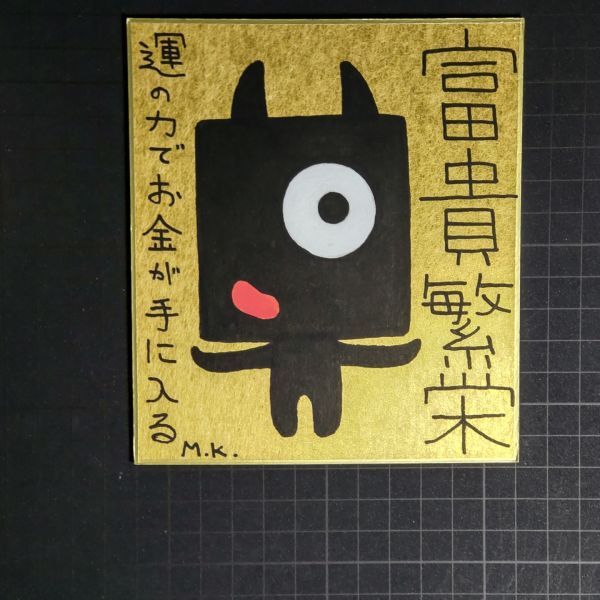 富貴繁栄
運の力でお金が手に入る
M.K.